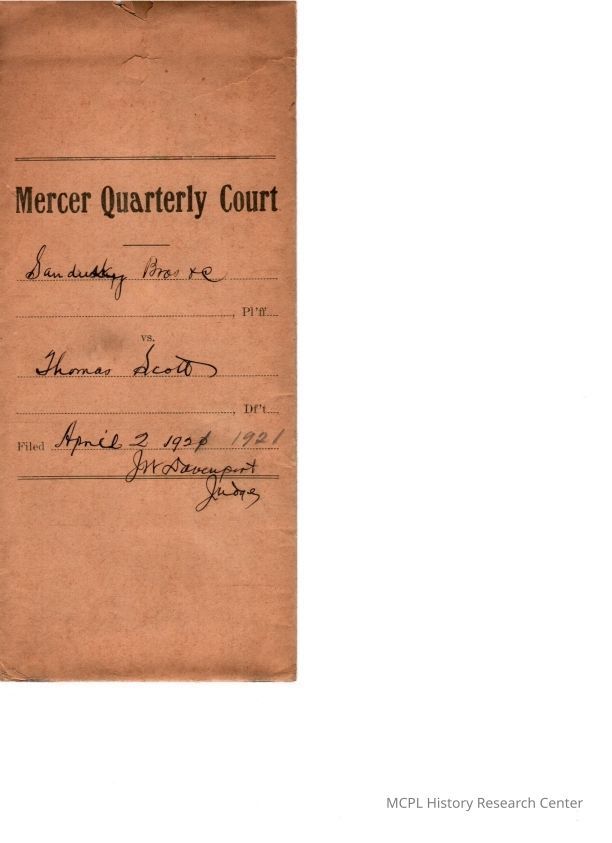 Mercer Quarterly Court
Sandusky Bros & C
Pl'ff
vs.
Thomas Scott
Df't
Filed April 2 1921 1921
JW Davenport
Judge
MCPL History Research Center